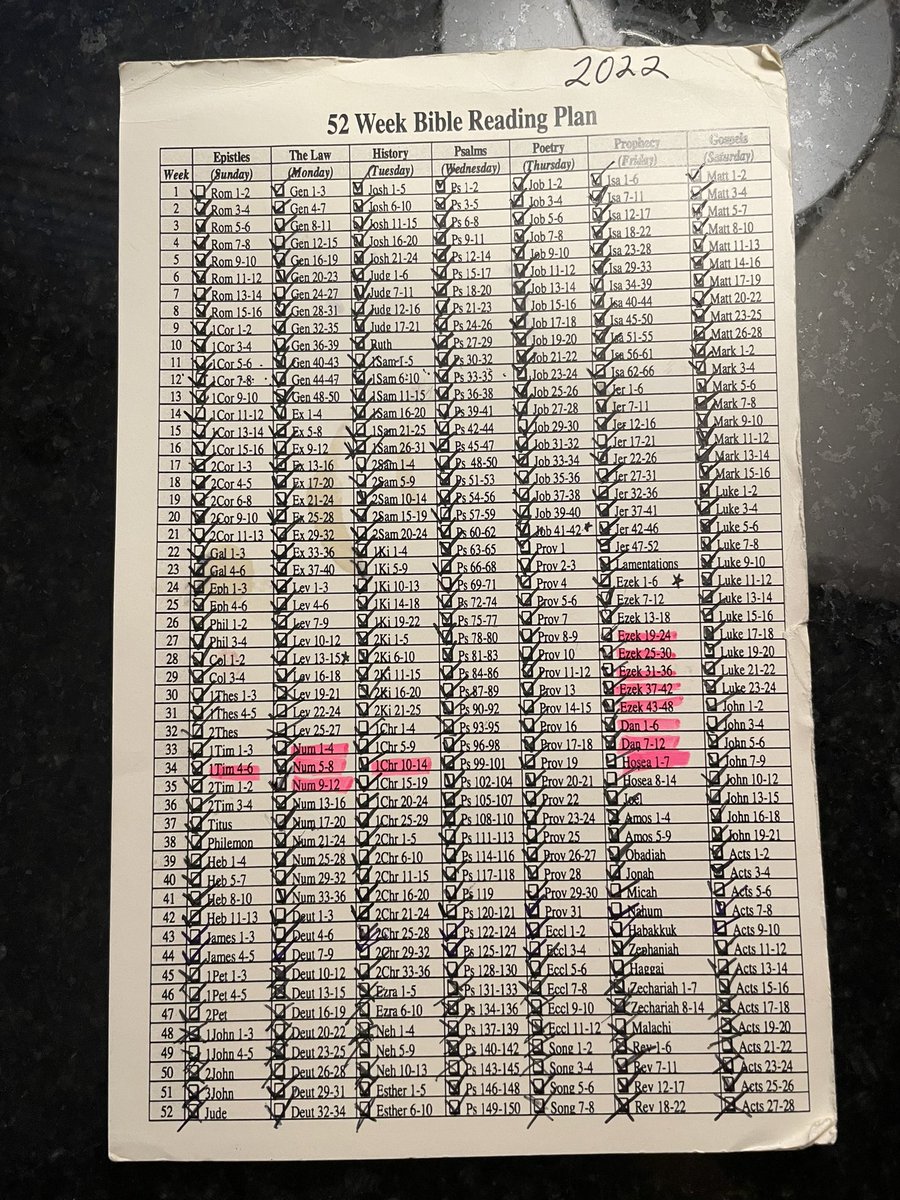 2022
52 Week Bible Reading Plan
Epistles The Law History Psalms Poetry Prophecy Gospels
Week (Sunday) (Monday) (Tuesday) (Wednesday) (Thursday) (Friday) (Saturday)
1 Rom 1-2 Gen 1-3 Josh 1-5 Ps 1-2 Job 1-2 Isa 1-6 Matt 1-2
2 Rom 3-4 Gen 4-7 Josh 6-10 Ps 3-5 Job 3-4 Isa 7-11 Matt 3-4
3 Rom 5-6 Gen 8-11 Josh 11-15 Ps 6-8 Job 5-6 Isa 12-17 Matt 5-7
4 Rom 7-8 Gen 12-15 Josh 16-20 Ps 9-11 Job 7-8 Isa 18-22 Matt 8-10
5 Rom 9-10 Gen 16-19 Josh 21-24 Ps 12-14 Job 9-10 Isa 23-28 Matt 11-13
6 Rom 11-12 Gen 20-23 Judg 1-6 Ps 15-17 Job 11-12 Isa 29-33 Matt 14-16
7 Rom 13-14 Gen 24-27 Judg 7-11 Ps 18-20 Job 13-14 Isa 34-39 Matt 17-19
8 Rom 15-16 Gen 28-31 Judg 12-16 Ps 21-23 Job 15-16 Isa 40-44 Matt 20-22
9 1Cor 1-2 Gen 32-35 Judg 17-21 Ps 24-26 Job 17-18 Isa 45-50 Matt 23-25
10 1Cor 3-4 Gen 36-39 Ruth Ps 27-29 Job 19-20 Isa 51-55 Matt 26-28
11 1Cor 5-6 Gen 40-43 1Sam 1-5 Ps 30-32 Job 21-22 Isa 56-61 Mark 1-2
12 1Cor 7-8 Gen 44-47 1Sam 6-10 Ps 33-35 Job 23-24 Isa 62-66 Mark 3-4
13 1Cor 9-10 Gen 48-50 1Sam 11-15 Ps 36-38 Job 25-26 Jer 1-6 Mark 5-6
14 1Cor 11-12 Ex 1-4 1Sam 16-20 Ps 39-41 Job 27-28 Jer 7-11 Mark 7-8
15 1Cor 13-14 Ex 5-8 1Sam 21-25 Ps 42-44 Job 29-30 Jer 12-16 Mark 9-10
16 1Cor 15-16 Ex 9-12 1Sam 26-31 Ps 45-47 Job 31-32 Jer 17-21 Mark 11-12
17 2Cor 1-3 Ex 13-16 2Sam 1-4 Ps 48-50 Job 33-34 Jer 22-26 Mark 13-14
18 2Cor 4-5 Ex 17-20 2Sam 5-9 Ps 51-53 Job 35-36 Jer 27-31 Mark 15-16
19 2Cor 6-8 Ex 21-24 2Sam 10-14 Ps 54-56 Job 37-38 Jer 32-36 Luke 1-2
20 2Cor 9-10 Ex 25-28 2Sam 15-19 Ps 57-59 Job 39-40 Jer 37-41 Luke 3-4
21 2Cor 11-13 Ex 29-32 2Sam 20-24 Ps 60-62 Job 41-42 Jer 42-46 Luke 5-6
22 Gal 1-3 Ex 33-36 1Ki 1-4 Ps 63-65 Prov 1 Jer 47-52 Luke 7-8
23 Gal 4-6 Ex 37-40 1Ki 5-9 Ps 66-68 Prov 2-3 Lamentations Luke 9-10
24 Eph 1-3 Lev 1-3 1Ki 10-13 Ps 69-71 Prov 4 Ezek 1-6 Luke 11-12
25 Eph 4-6 Lev 4-6 1Ki 14-18 Ps 72-74 Prov 5-6 Ezek 7-12 Luke 13-14
26 Phil 1-2 Lev 7-9 1Ki 19-22 Ps 75-77 Prov 7 Ezek 13-18 Luke 15-16
27 Phil 3-4 Lev 10-12 2Ki 1-5 Ps 78-80 Prov 8-9 Ezek 19-24 Luke 17-18
28 Col 1-2 Lev 13-15 2Ki 6-10 Ps 81-83 Prov 10 Ezek 25-30 Luke 19-20
29 Col 3-4 Lev 16-18 2Ki 11-15 Ps 84-86 Prov 11-12 Ezek 31-36 Luke 21-22
30 1Thes 1-3 Lev 19-21 2Ki 16-20 Ps 87-89 Prov 13 Ezek 37-42 Luke 23-24
31 1Thes 4-5 Lev 22-24 2Ki 21-25 Ps 90-92 Prov 14-15 Ezek 43-48 John 1-2
32 2Thes Lev 25-27 1Chr 1-4 Ps 93-95 Prov 16 Dan 1-6 John 3-4
33 1Tim 1-3 Num 1-4 1Chr 5-9 Ps 96-98 Prov 17-18 Dan 7-12 John 5-6
34 1Tim 4-6 Num 5-8 1Chr 10-14 Ps 99-101 Prov 19 Hosea 1-7 John 7-9
35 2Tim 1-2 Num 9-12 1Chr 15-19 Ps 102-104 Prov 20-21 Hosea 8-14 John 10-12
36 2Tim 3-4 Num 13-16 1Chr 20-24 Ps 105-107 Prov 22 Joel John 13-15
37 Titus Num 17-20 1Chr 25-29 Ps 108-110 Prov 23-24 Amos 1-4 John 16-18
38 Philemon Num 21-24 2Chr 1-5 Ps 111-113 Prov 25 Amos 5-9 John 19-21
39 Heb 1-4 Num 25-28 2Chr 6-10 Ps 114-116 Prov 26-27 Obadiah Acts 1-2
40 Heb 5-7 Num 29-32 2Chr 11-15 Ps 117-118 Prov 28 Jonah Acts 3-4
41 Heb 8-10 Num 33-36 2Chr 16-20 Ps 119 Prov 29-30 Micah Acts 5-6
42 Heb 11-13 Deut 1-3 2Chr 21-24 Ps 120-121 Prov 31 Nahum Acts 7-8
43 James 1-3 Deut 4-6 2Chr 25-28 Ps 122-124 Eccl 1-2 Habakkuk Acts 9-10
44 James 4-5 Deut 7-9 2Chr 29-32 Ps 125-127 Eccl 3-4 Zephaniah Acts 11-12
45 1Pet 1-3 Deut 10-12 2Chr 33-36 Ps 128-130 Eccl 5-6 Haggai Acts 13-14
46 1Pet 4-5 Deut 13-15 Ezra 1-5 Ps 131-133 Eccl 7-8 Zechariah 1-7 Acts 15-16
47 2Pet Deut 16-19 Ezra 6-10 Ps 134-136 Eccl 9-10 Zechariah 8-14 Acts 17-18
48 1John 1-3 Deut 20-22 Neh 1-4 Ps 137-139 Eccl 11-12 Malachi Acts 19-20
49 1John 4-5 Deut 23-25 Neh 5-9 Ps 140-142 Song 1-2 Rev 1-6 Acts 21-22
50 2John Deut 26-28 Neh 10-13 Ps 143-145 Song 3-4 Rev 7-11 Acts 23-24
51 3John Deut 29-31 Esther 1-5 Ps 146-148 Song 5-6 Rev 12-17 Acts 25-26
52 Jude Deut 32-34 Esther 6-10 Ps 149-150 Song 7-8 Rev 18-22 Acts 27-28